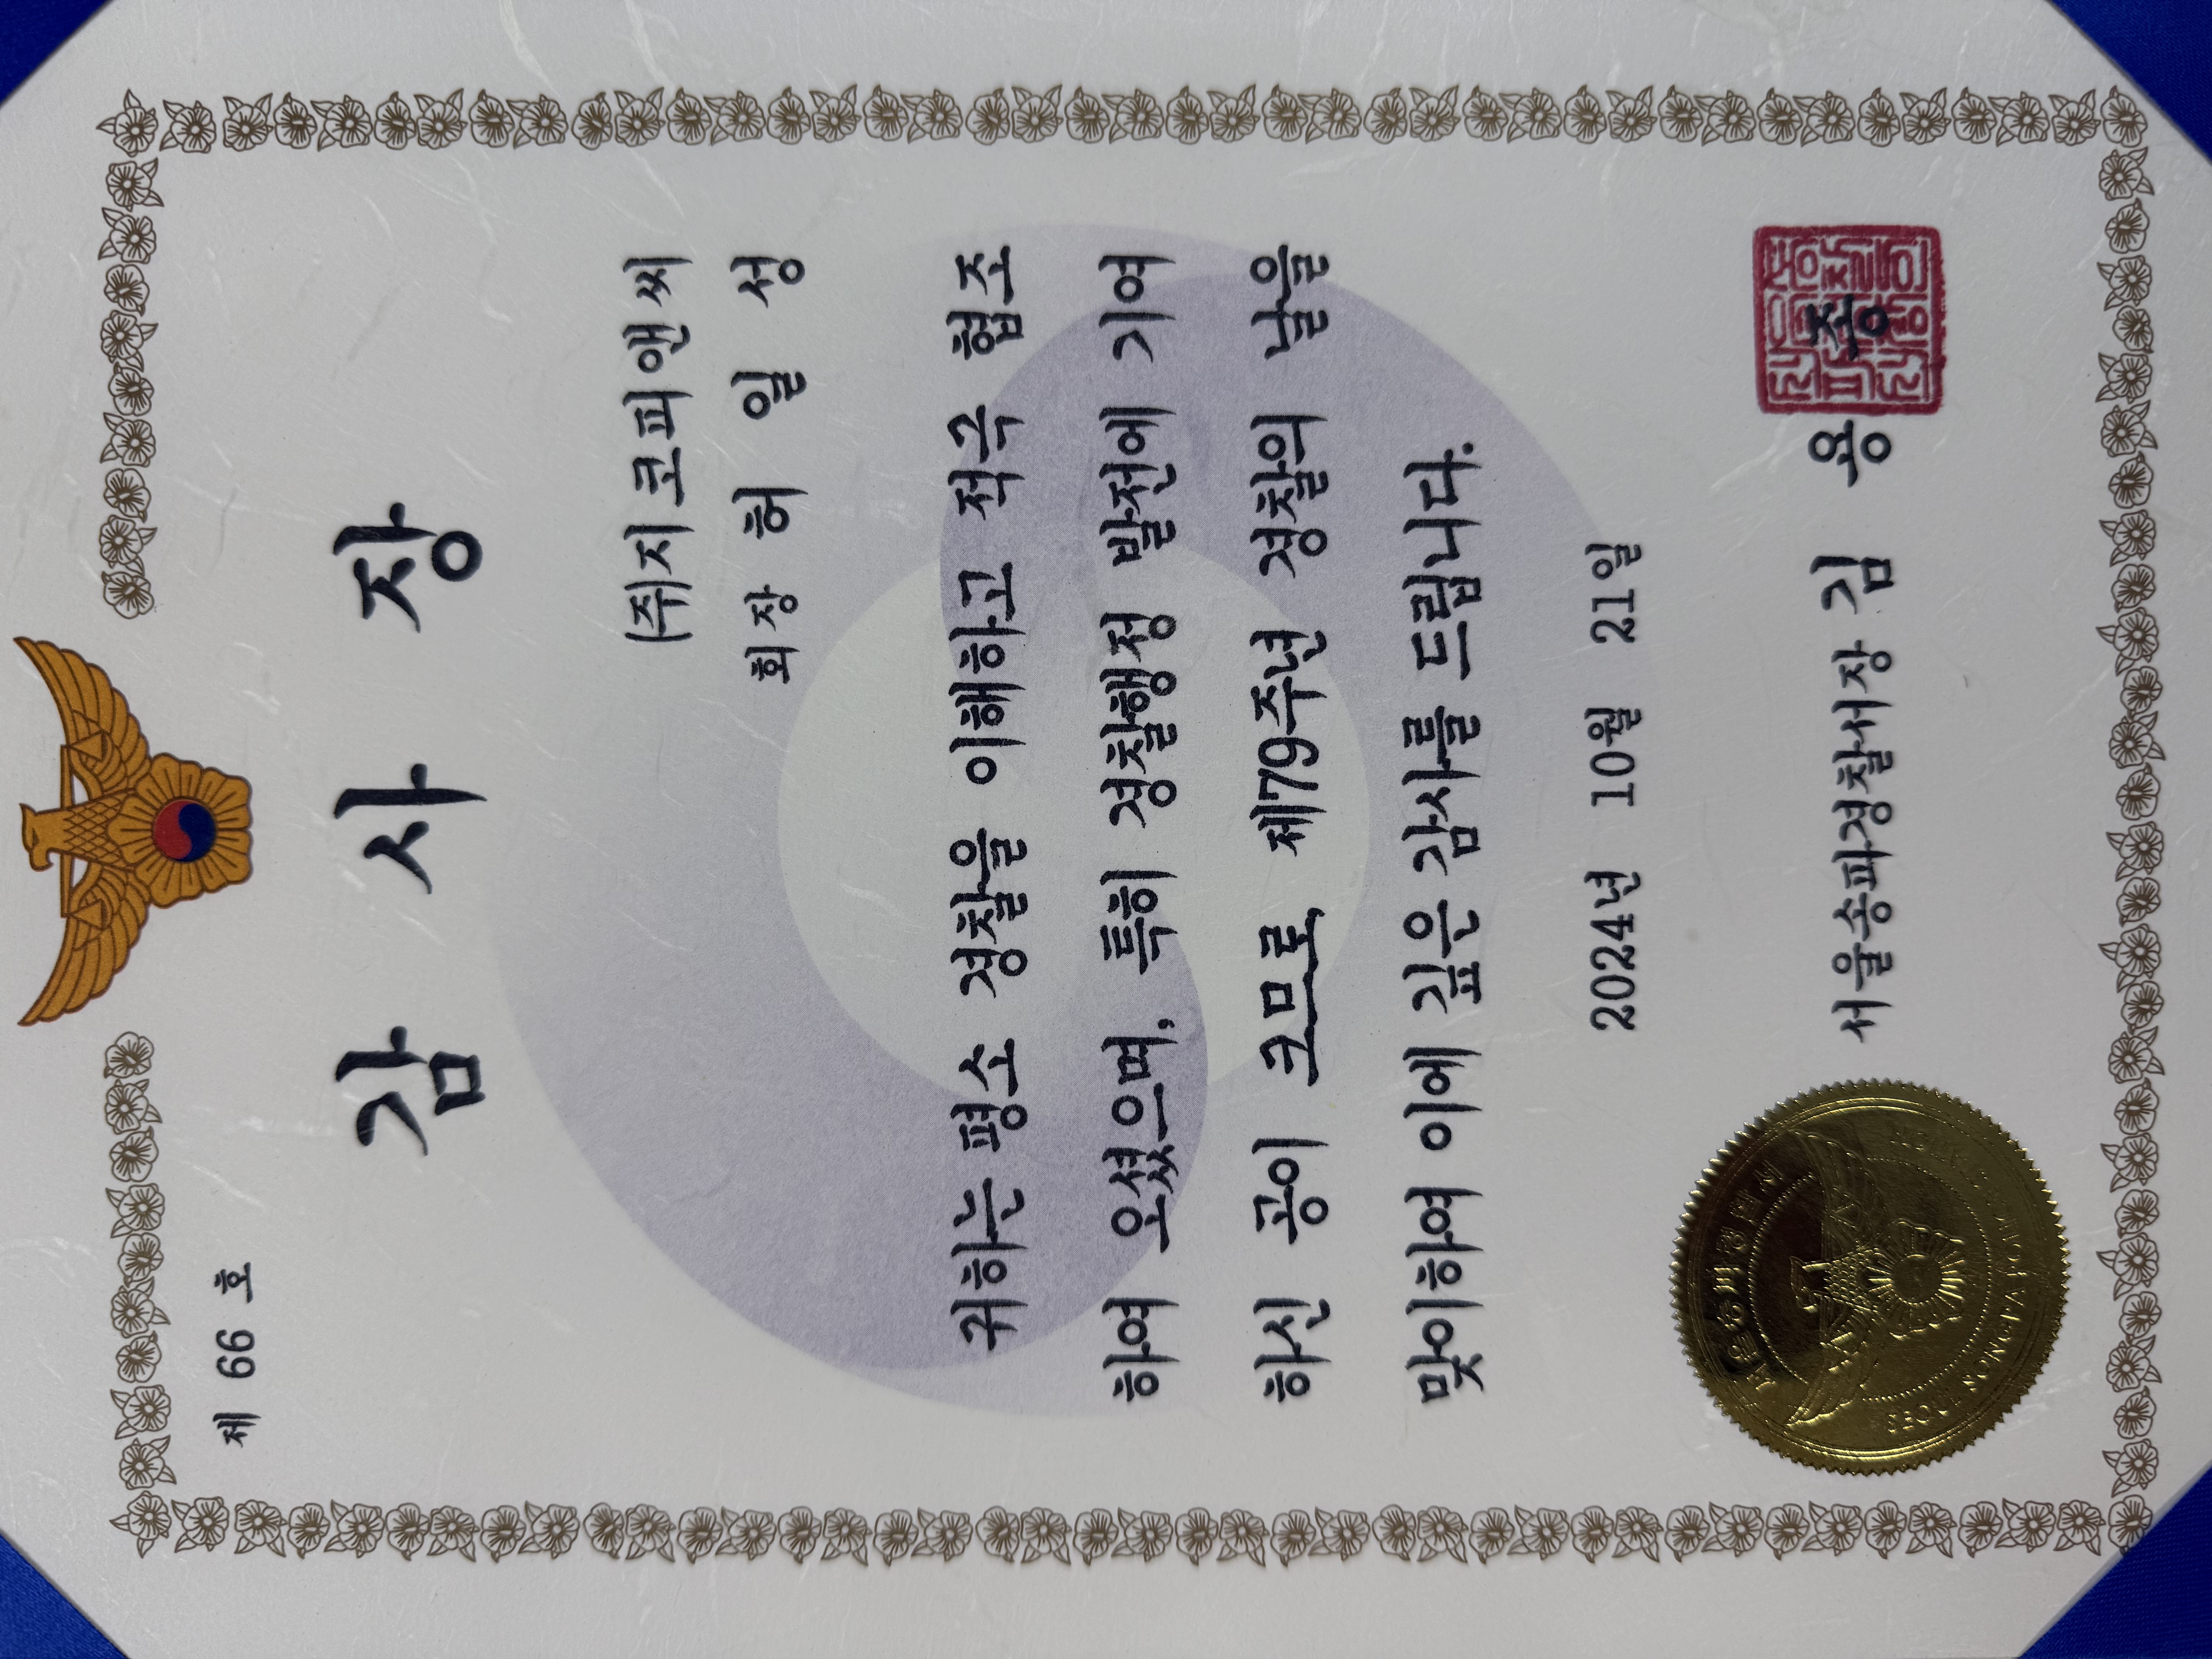 제 66 호
감 사 장
(주)지코피앤씨
회장 허 일 성
귀하는 평소 경찰을 이해하고 적극 협조
하여 오셨으며, 특히 경찰행정 발전에 기여
하신 공이 크므로, 제79주년 경찰의 날을
맞이하여 이에 깊은 감사를 드립니다.
2024년 10월 21일
서울송파경찰서장 김 용 종
서울송파경찰서
SEOUL SONGPA POLICE STATION